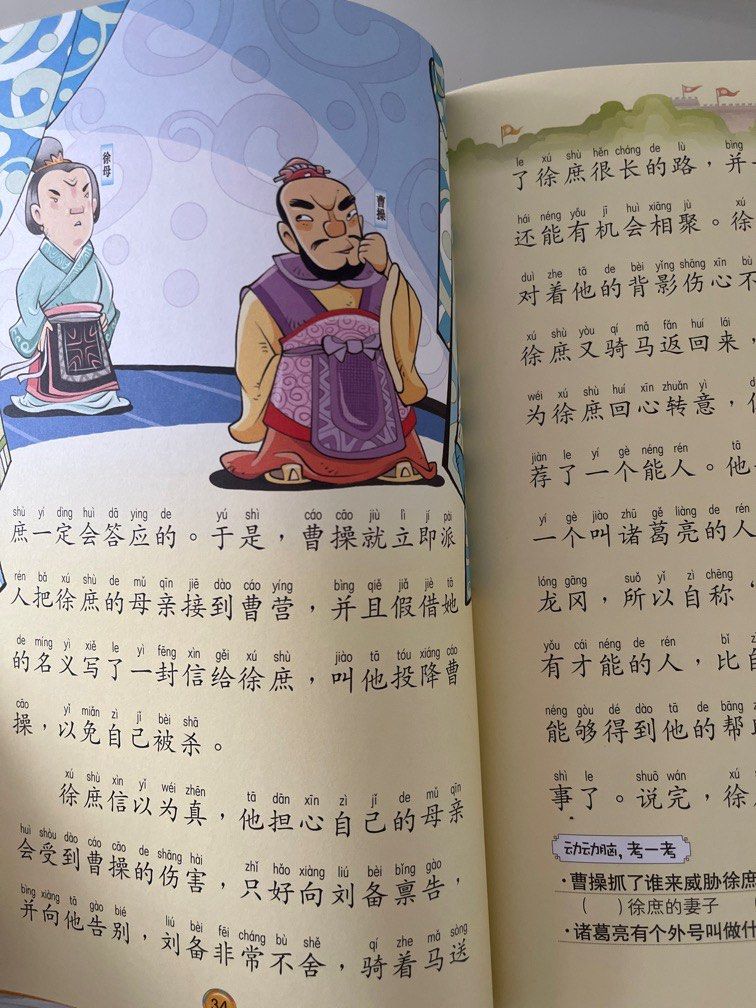 徐母
曹操
shù yí dìng huì dā ying de yú shì cáo cāo jiù lì jí pài
庶一定会答应的。于是，曹操就立即派
rén bǎ xú shù de mǔ qīn jiē dào cáo yíng bìng qiě jiǎ jiè tā
人把徐庶的母亲接到曹营，并且假借她
de míng yì xiě le yì fēng xìn gěi xú shù jiào tā tóu xiáng cáo
的名义写了一封信给徐庶，叫他投降曹
cāo yǐ miǎn zì jǐ bèi shā
操，以免自己被杀。
xú shù xìn yǐ wéi zhēn tā dān xīn zì jǐ de mǔ qīn
徐庶信以为真，他担心自己的母亲
huì shòu dào cáo cāo de shāng hài zhǐ hǎo xiàng liú bèi bǐng gào
会受到曹操的伤害，只好向刘备禀告，
bìng xiàng tā gào bié liú bèi fēi cháng bù shě qí zhe mǎ sòng
并向他告别，刘备非常不舍，骑着马送
34
le xú shù hěn cháng de lù bìng
了徐庶很长的路，并
hái néng yǒu jī huì xiāng jù xú
还能有机会相聚。徐
duì zhe tā de bèi yǐng shāng xīn bù
对着他的背影伤心不
xú shù yòu qí mǎ fǎn huí lái
徐庶又骑马返回来，
wéi xú shù huí xīn zhuǎn yì d
为徐庶回心转意，
jiàn le yí gè néng rén tā
荐了一个能人。他
yí gè jiào zhū gě liàng de rén
一个叫诸葛亮的人
lóng gāng suǒ yǐ zì chēng
龙冈，所以自称
yǒu cái néng de rén bǐ z
有才能的人，比自
néng gòu dé dào tā de bāng z
能够得到他的帮助
shì le shuō wán xú
事了。说完，徐
动动脑，考一考
·曹操抓了谁来威胁徐庶
( )徐庶的妻子 (
·诸葛亮有个外号叫做什